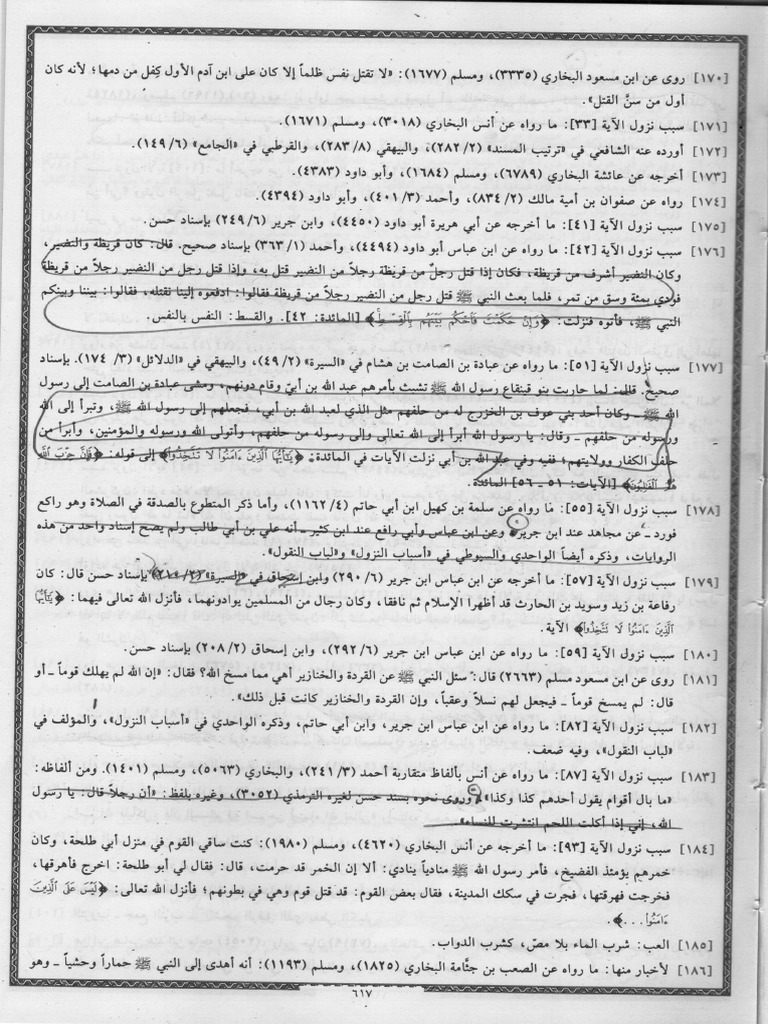 [١٧٠] روى عن ابن مسعود البخاري (٣٣٣٥)، ومسلم (١٦٧٧): «لا تقتل نفس ظلماً إلا كان على ابن آدم الأول كِفل من دمها؛ لأنه كان
أول من سنَّ القتل».
[١٧١] سبب نزول الآية [٣٣]: ما رواه عن أنس البخاري (٣٠١٨)، ومسلم (١٦٧١).
[١٧٢] أورده عنه الشافعي في «ترتيب المسند» (٢/ ٢٨٢)، والبيهقي (٨/ ٢٨٣)، والقرطبي في «الجامع» (٦/ ١٤٩).
[١٧٣] أخرجه عن عائشة البخاري (٦٧٨٩)، ومسلم (١٦٨٤)، وأبو داود (٤٣٨٣).
[١٧٤] رواه عن صفوان بن أمية مالك (٢/ ٨٣٤)، وأحمد (٣/ ٤٠١)، وأبو داود (٤٣٩٤).
[١٧٥] سبب نزول الآية [٤١]: ما أخرجه عن أبي هريرة أبو داود (٤٤٥٠)، وابن جرير (٦/ ٢٤٩) بإسناد حسن.
[١٧٦] سبب نزول الآية [٤٢]: ما رواه عن ابن عباس أبو داود (٤٤٩٤)، وأحمد (١/ ٣٦٣) بإسناد صحيح. قال: كان قريظة والنضير،
وكان النضير أشرف من قريظة، فكان إذا قتل رجلٌ من قريظة رجلاً من النضير قتل به، وإذا قتل رجل من النضير رجلاً من قريظة
فودي بمئة وسق من تمر، فلما بعث النبي ﷺ قتل رجل من النضير رجلاً من قريظة فقالوا: ادفعوه إلينا نقتله، فقالوا: بيننا وبينكم
النبي ﷺ، فأتوه فنزلت: ﴿وَإِنْ حَكَمْتَ فَاحْكُم بَيْنَهُم بِالْقِسْطِ﴾ [المائدة: ٤٢]. والقسط: النفس بالنفس.
[١٧٧] سبب نزول الآية [٥١]: ما رواه عن عبادة بن الصامت بن هشام في «السيرة» (٢/ ٤٩)، والبيهقي في «الدلائل» (٣/ ١٧٤). بإسناد
صحيح. قال: لما حاربت بنو قينقاع رسول الله ﷺ تشبث بأمرهم عبد الله بن أبيّ وقام دونهم، ومشى عبادة بن الصامت إلى رسول
الله ﷺ ـ وكان أحد بني عوف بن الخزرج له من حلفهم مثل الذي لعبد الله بن أبي، فجعلهم إلى رسول الله ﷺ، وتبرأ إلى الله
ورسوله من حلفهم ـ وقال: يا رسول الله أبرأ إلى الله تعالى وإلى رسوله من حلفهم، وأتولى الله ورسوله والمؤمنين، وأبرأ من
حلف الكفار وولايتهم؛ ففيه وفي عبد الله بن أبي نزلت الآيات في المائدة: ﴿يَا أَيُّهَا الَّذِينَ ءَامَنُوا لَا تَتَّخِذُوا﴾ إلى قوله: ﴿فَإِنَّ حِزْبَ اللَّهِ
هُمُ الْغَالِبُونَ﴾ [الآيات: ٥١ ـ ٥٦] المائدة.
[١٧٨] سبب نزول الآية [٥٥]: ما رواه عن سلمة بن كهيل ابن أبي حاتم (٤/ ١١٦٢)، وأما ذكر المتطوع بالصدقة في الصلاة وهو راكع
فورد ـ عن مجاهد عند ابن جرير وعن ابن عباس وأبي رافع عند ابن كثير ـ أنه علي بن أبي طالب ولم يصح إسناد واحد من هذه
الروايات، وذكره أيضاً الواحدي والسيوطي في «أسباب النزول» و«لباب النقول».
[١٧٩] سبب نزول الآية [٥٧]: ما أخرجه عن ابن عباس ابن جرير (٦/ ٢٩٠) وابن إسحاق في «السيرة» بإسناد حسن قال: كان
رفاعة بن زيد وسويد بن الحارث قد أظهرا الإسلام ثم نافقا، وكان رجال من المسلمين يوادونهما، فأنزل الله تعالى فيهما: ﴿يَا أَيُّهَا
الَّذِينَ ءَامَنُوا لَا تَتَّخِذُوا﴾ الآية.
[١٨٠] سبب نزول الآية [٥٩]: ما رواه عن ابن عباس ابن جرير (٦/ ٢٩٢)، وابن إسحاق (٢/ ٢٠٨) بإسناد حسن.
[١٨١] روى عن ابن مسعود مسلم (٢٦٦٣) قال: سئل النبي ﷺ عن القردة والخنازير أهي مما مسخ الله؟ فقال: «إن الله لم يهلك قوماً ـ أو
قال: لم يمسخ قوماً ـ فيجعل لهم نسلاً وعقباً، وإن القردة والخنازير كانت قبل ذلك».
[١٨٢] سبب نزول الآية [٨٢]: ما رواه عن ابن عباس ابن جرير، وابن أبي حاتم، وذكره الواحدي في «أسباب النزول»، والمؤلف في
«لباب النقول»، وفيه ضعف.
[١٨٣] سبب نزول الآية [٨٧]: ما رواه عن أنس بألفاظ متقاربة أحمد (٣/ ٢٤١)، والبخاري (٥٠٦٣)، ومسلم (١٤٠١). ومن ألفاظه:
«ما بال أقوام يقول أحدهم كذا وكذا» وروى نحوه بسند حسن لغيره الترمذي (٣٠٥٢)، وغيره بلفظ: «أن رجلاً قال: يا رسول
الله، إني إذا أكلت اللحم انتشرت للنساء».
[١٨٤] سبب نزول الآية [٩٣]: ما أخرجه عن أنس البخاري (٤٦٢٠)، ومسلم (١٩٨٠): كنت ساقي القوم في منزل أبي طلحة، وكان
خمرهم يومئذ الفضيخ، فأمر رسول الله ﷺ منادياً ينادي: ألا إن الخمر قد حرمت، قال: فقال لي أبو طلحة: اخرج فأهرقها،
فخرجت فهرقتها، فجرت في سكك المدينة، فقال بعض القوم: قد قتل قوم وهي في بطونهم؛ فأنزل الله تعالى: ﴿لَيْسَ عَلَى الَّذِينَ
ءَامَنُوا . . .﴾.
[١٨٥] العب: شرب الماء بلا مصّ، كشرب الدواب.
[١٨٦] لأخبار منها: ما رواه عن الصعب بن جثَّامة البخاري (١٨٢٥)، ومسلم (١١٩٣): أنه أهدى إلى النبي ﷺ حماراً وحشياً ـ وهو
٦١٧